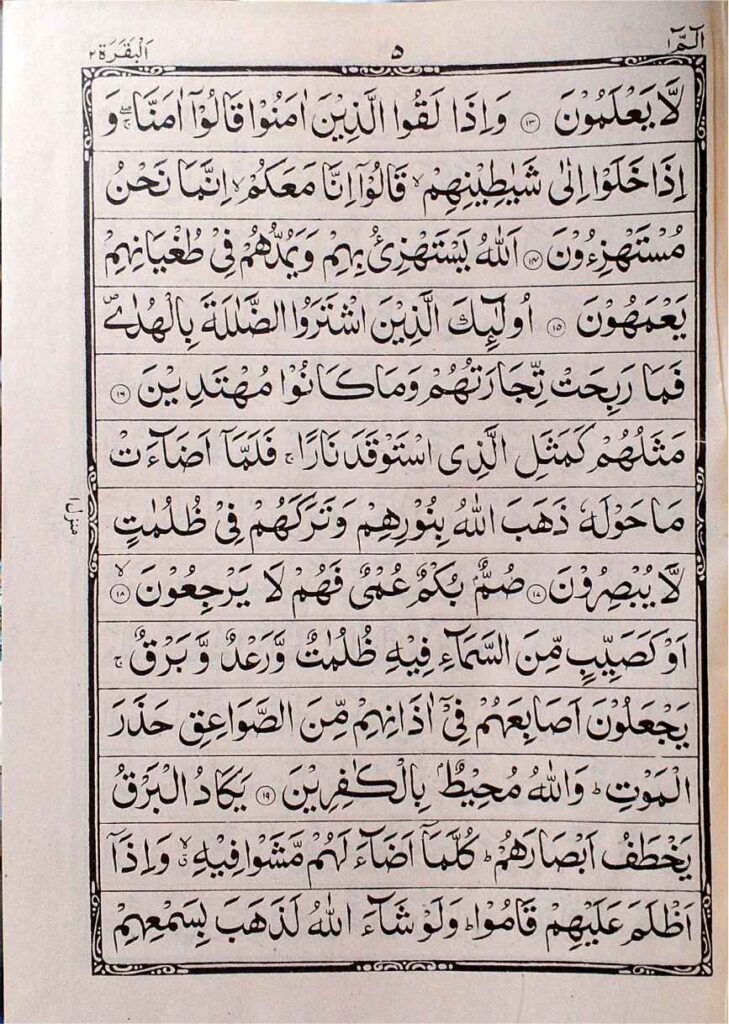 الٓمّٓ ١
٥
اَلْبَقَرَة ٢
لَّا يَعْلَمُوْنَ ١٣ وَاِذَا لَقُوا الَّذِيْنَ اٰمَنُوْا قَالُوْۤا اٰمَنَّا ۖۚ وَ
اِذَا خَلَوْا اِلٰى شَيٰطِيْنِهِمْ ۙ قَالُوْۤا اِنَّا مَعَكُمْ ۙ اِنَّمَا نَحْنُ
مُسْتَهْزِءُوْنَ ١٤ اَللّٰهُ يَسْتَهْزِئُ بِهِمْ وَيَمُدُّهُمْ فِيْ طُغْيَانِهِمْ
يَعْمَهُوْنَ ١٥ اُولٰٓئِكَ الَّذِيْنَ اشْتَرَوُا الضَّلٰلَةَ بِالْهُدٰى ۪
فَمَا رَبِحَتْ تِّجَارَتُهُمْ وَمَا كَانُوْا مُهْتَدِيْنَ ١٦
مَثَلُهُمْ كَمَثَلِ الَّذِى اسْتَوْقَدَ نَارًا ۚ فَلَمَّاۤ اَضَآءَتْ
مَا حَوْلَهٗ ذَهَبَ اللّٰهُ بِنُوْرِهِمْ وَتَرَكَهُمْ فِيْ ظُلُمٰتٍ
لَّا يُبْصِرُوْنَ ١٧ صُمٌّۢ بُكْمٌ عُمْىٌ فَهُمْ لَا يَرْجِعُوْنَ ۙ ١٨
اَوْ كَصَيِّبٍ مِّنَ السَّمَآءِ فِيْهِ ظُلُمٰتٌ وَّرَعْدٌ وَّبَرْقٌ ۚ
يَجْعَلُوْنَ اَصَابِعَهُمْ فِيْۤ اٰذَانِهِمْ مِّنَ الصَّوَاعِقِ حَذَرَ
الْمَوْتِ ؕ وَاللّٰهُ مُحِيْطٌۢ بِالْكٰفِرِيْنَ ١٩ يَكَادُ الْبَرْقُ
يَخْطَفُ اَبْصَارَهُمْ ؕ كُلَّمَاۤ اَضَآءَ لَهُمْ مَّشَوْا فِيْهِ ۙ وَاِذَاۤ
اَظْلَمَ عَلَيْهِمْ قَامُوْا ؕ وَلَوْ شَآءَ اللّٰهُ لَذَهَبَ بِسَمْعِهِمْ
منزل ١